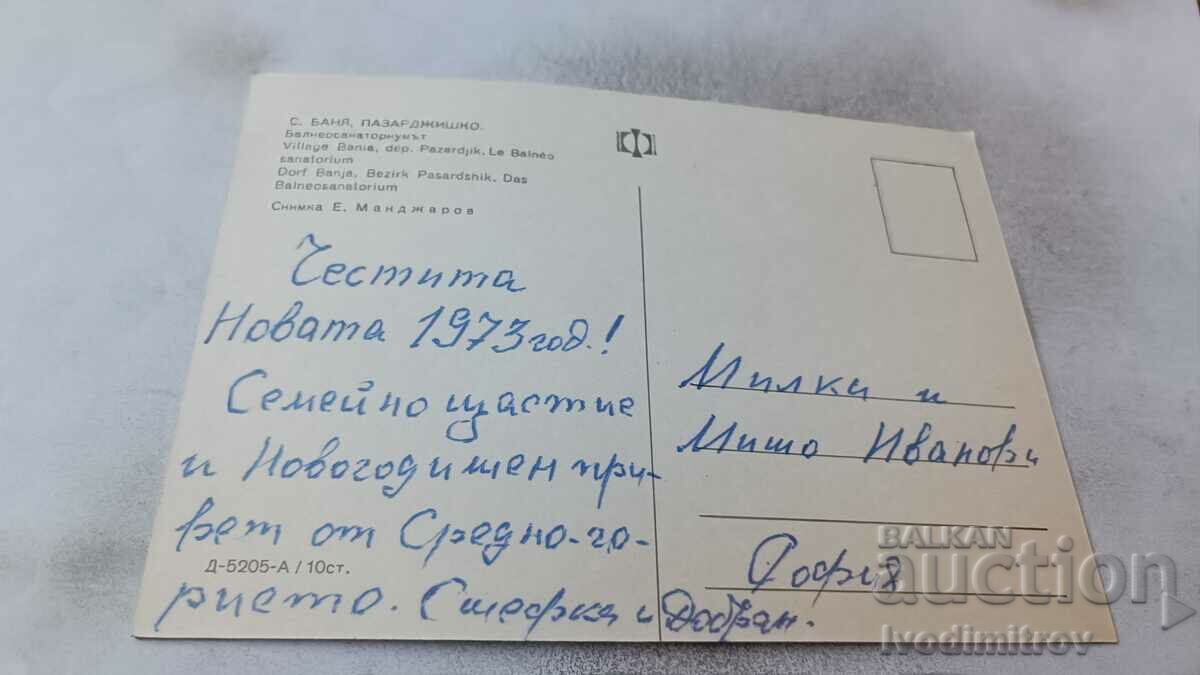 С. БАНЯ, ПАЗАРДЖИШКО.
Балнеосанаториумът
Village Bania, dep. Pazardjik, Le Balnéo
sanatorium
Dorf Banja, Bezirk Pasardshik, Das
Balneosanatorium
Снимка Е. Манджаров
Честита
Новата 1973 год.!
Семейно щастие
и Новогодишен при-
вет от Средно-го-
рието. Стефка и Добран.
Д-5205-А / 10ст.
Милка и
Мишо Иванови
София
BALKAN
auction
Ivodimitrov